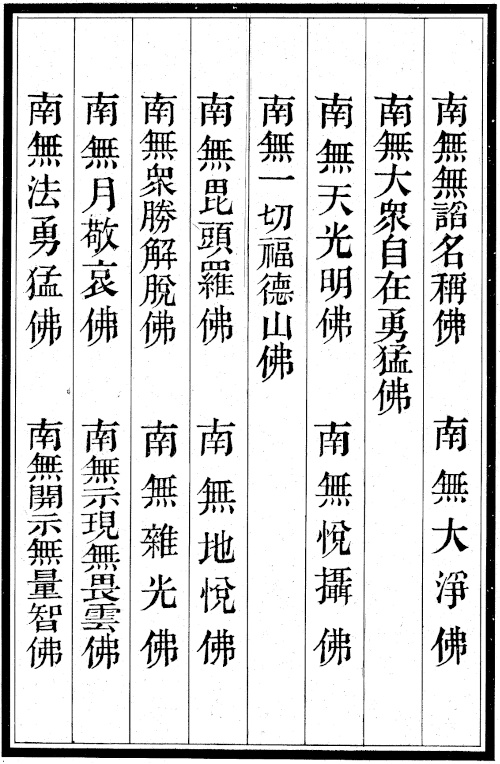 南無無諂名稱佛　南無大淨佛
南無大衆自在勇猛佛
南無天光明佛　南無悅攝佛
南無一切福德山佛
南無毘頭羅佛　南無地悅佛
南無衆勝解脫佛　南無雜光佛
南無月敬哀佛　南無示現無畏雲佛
南無法勇猛佛　南無開示無量智佛